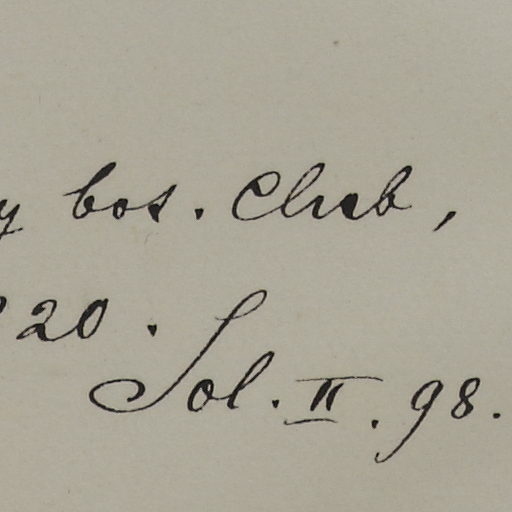 y bot. Club,
20.
Sol. II. 98.